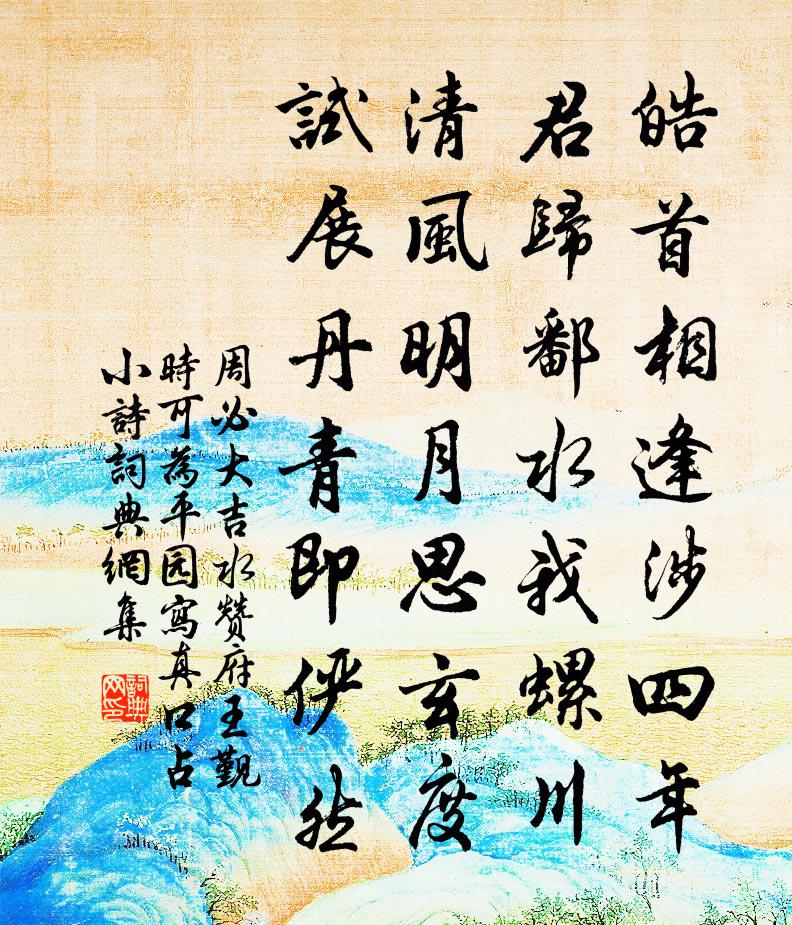 皓首相逢涉四年
君歸鄱水我螺川
清風明月思玄度
試展丹青即俨然
周必大吉水赞府王觀
時可為平园寫真口占
小詩詞典網集
詞典
网印